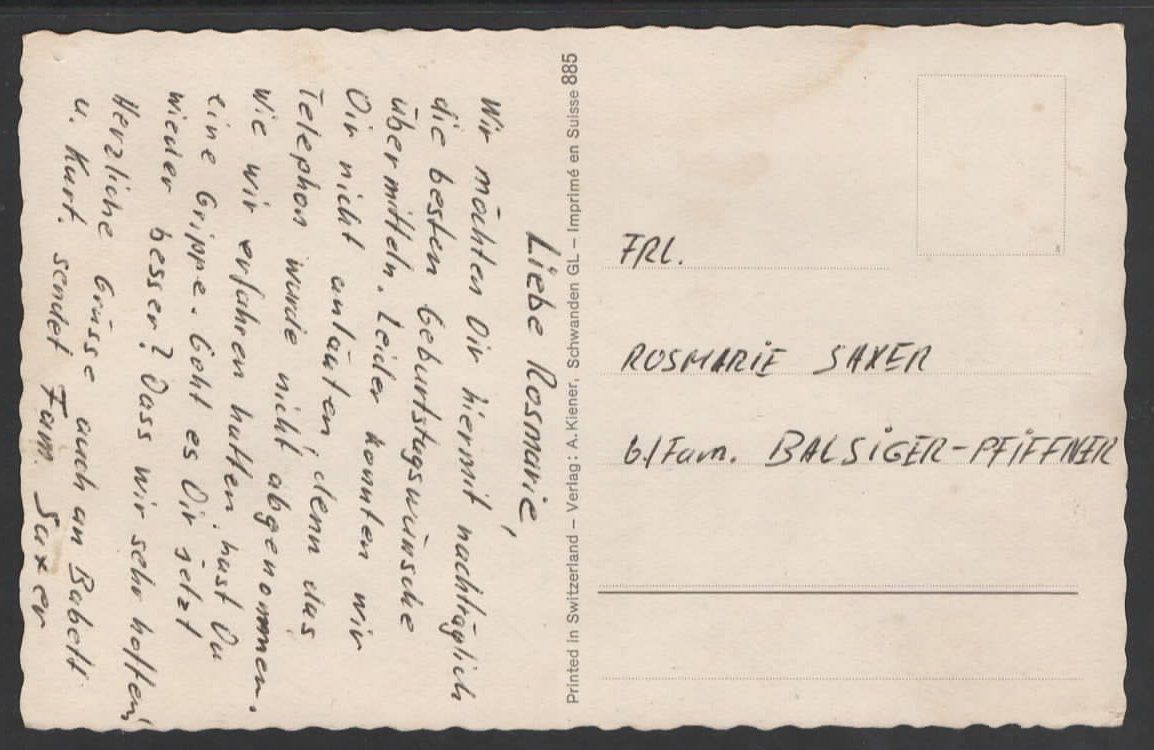 Liebe Rosmarie,
Wir möchten Dir hiermit nachträglich
die besten Geburtstagswünsche
übermitteln. Leider konnten wir
Dir nicht anläuten, denn das
Telephon wurde nicht abgenommen.
Wie wir erfahren hatten, hast Du
eine Grippe. Geht es Dir jetzt
wieder besser? Dass wir sehr hoffen!
Herzliche Grüsse auch an Babett
u. Kurt. sendet Fam. Saxer
Printed in Switzerland – Verlag: A. Kiener, Schwanden GL – Imprimé en Suisse 885
FRL.
ROSMARIE SAXER
b./Fam. BALSIGER-PFIFFNER